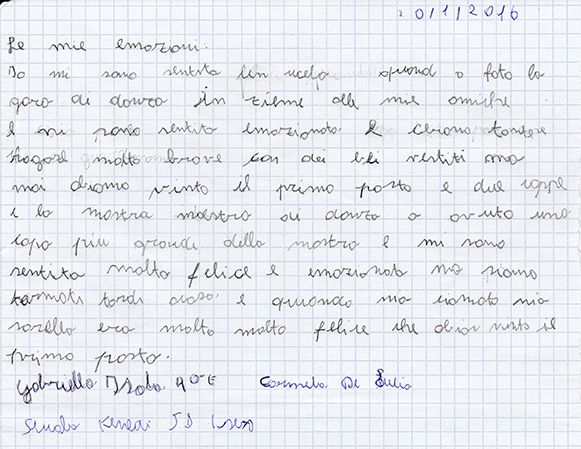 20/1/2016
Le mie emozioni.
Io mi sono sentita quand o foto la
gara di danza in zieme alle mie amiche
E mi sono sentita emozionata E c'erano tante
ragaze molto brave con dei beli vestiti ma
noi abiamo vinto il primo posto e due coppe
e la nostra maestra di danza a avuto una
copa più grande della nostra E mi sono
sentita molto felice e emozionata ma siamo
tornati tardi a casa e quando mia
sorella era molto molto felice che abiam vinto il
primo posto.
Gabriella Isola Carmela De Lucia
Scuola Kenedi 5D